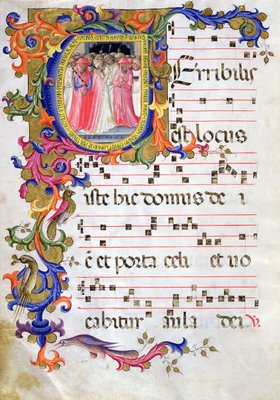 Erribilis
est locus
iste hic domus de i
c̄ et porta celi et uo
cabitur aula dei. V.